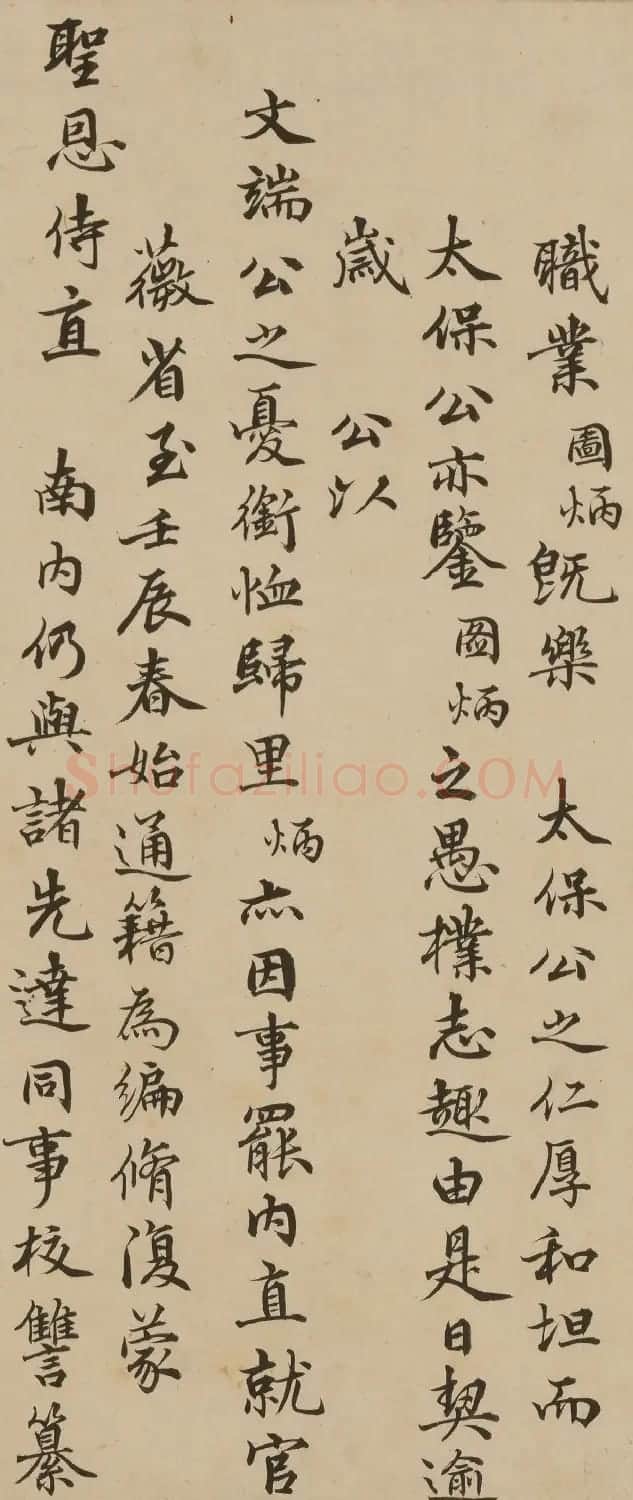 職業圖炳既樂 太保公之仁厚和坦而
太保公亦鑒圖炳之愚樸志趣由是日契逾
歲 公以
文端公之憂銜恤歸里炳亦因事罷内直就官
薇省至壬辰春始通籍為編脩復蒙
聖恩侍直 南内仍與諸先達同事校讐纂
Shufaziliao.COM